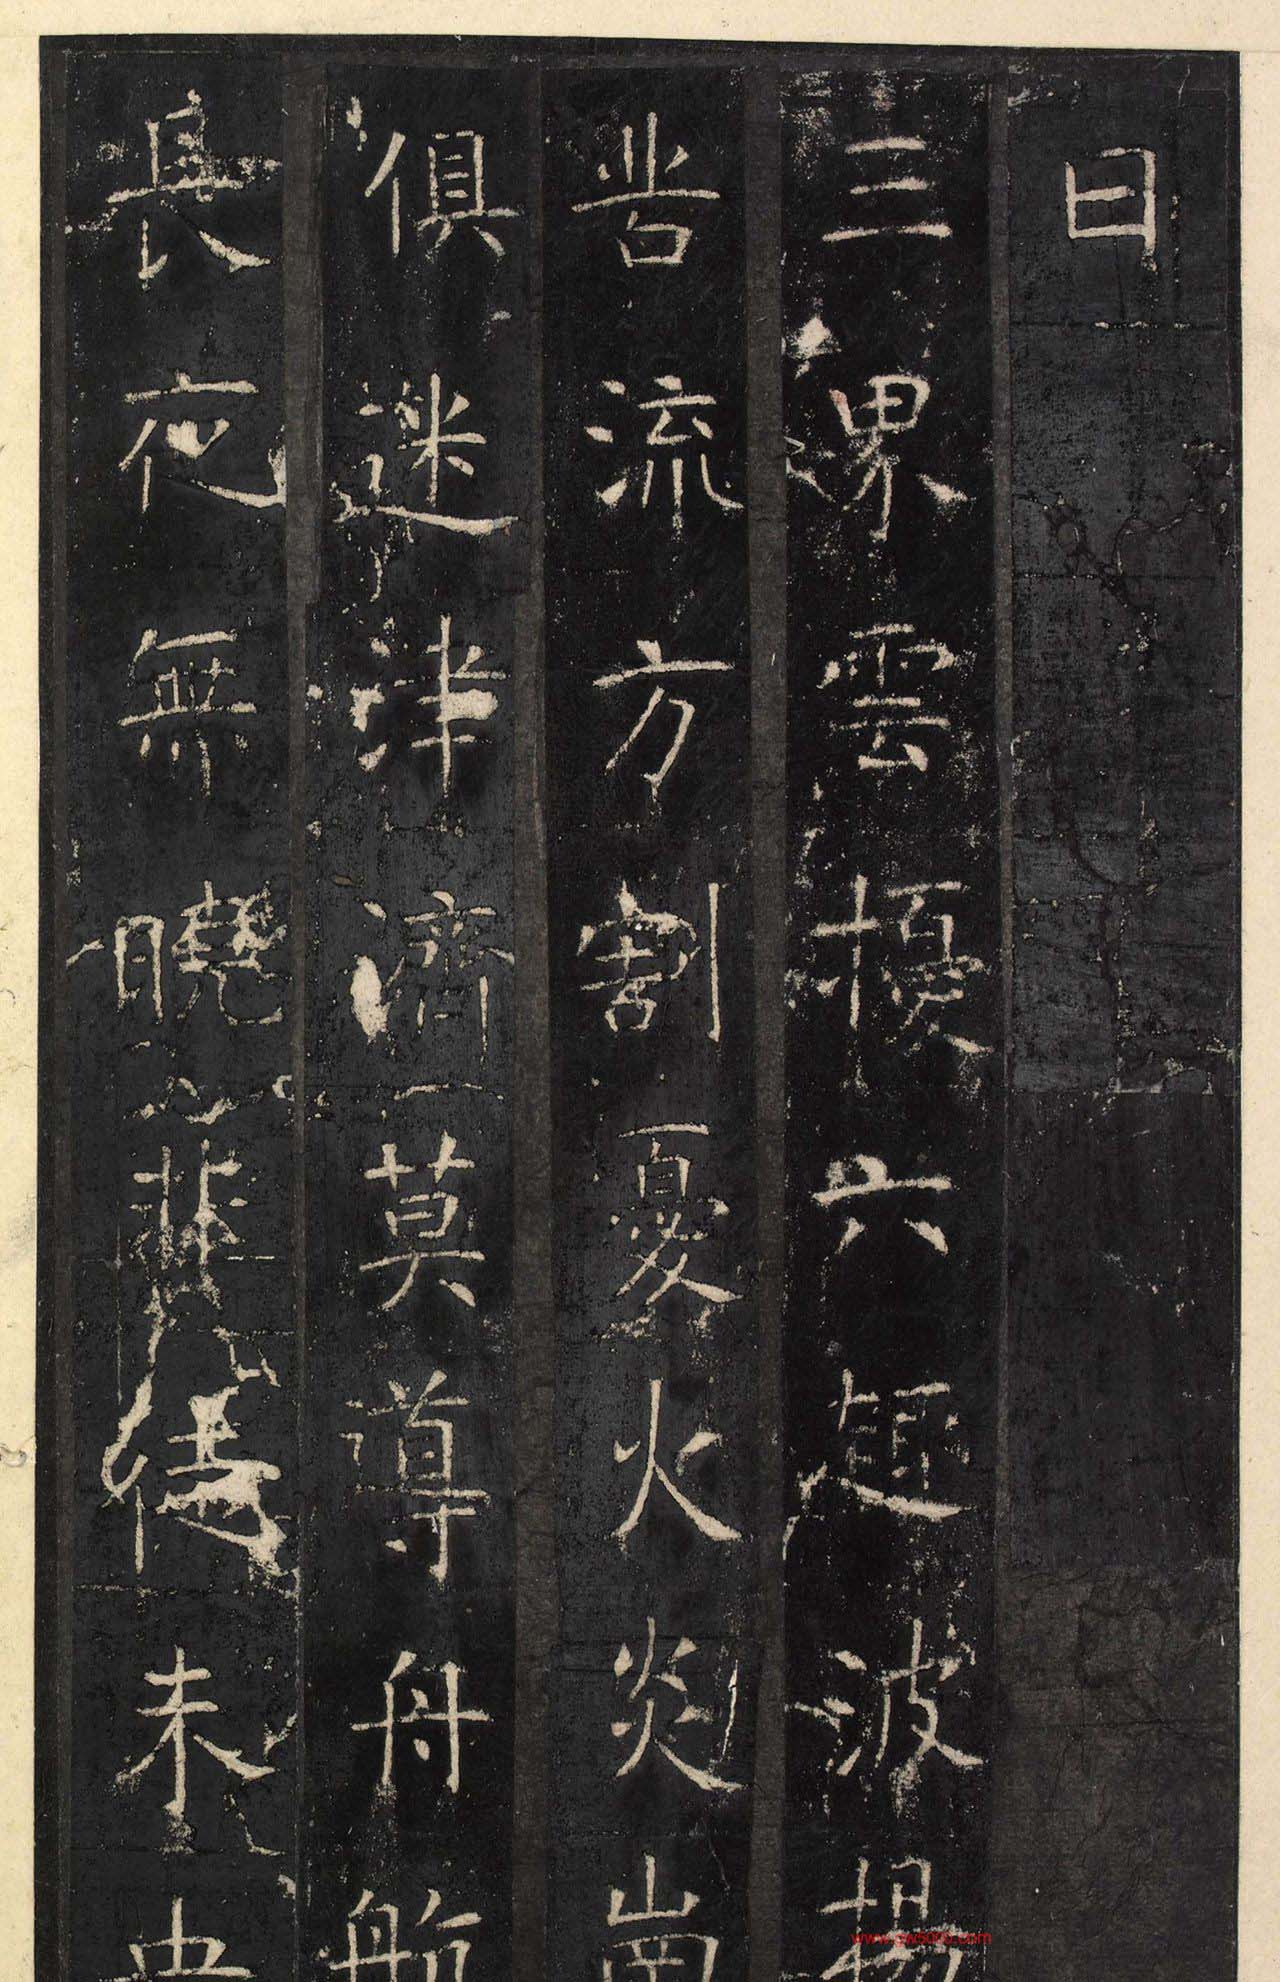 曰
三界雲擾六趣波揚
昔流方割憂火炎崗
俱迷津濟莫導舟航
長夜無曉悲優未央
www.gw5000.com